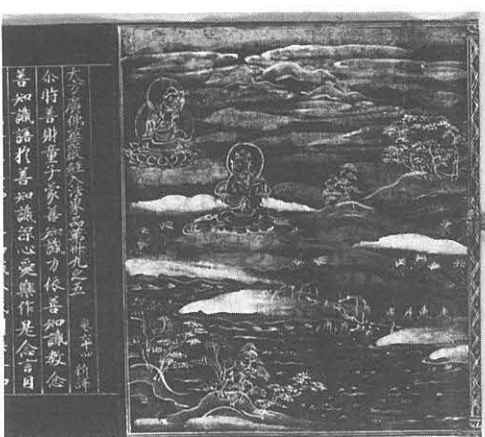 大方廣佛華嚴經入法界品第卅九之五 卷六十四 新譯
尒時善財童子蒙善知識力依善知識教念
善知識語於善知識深心愛樂作是念言因